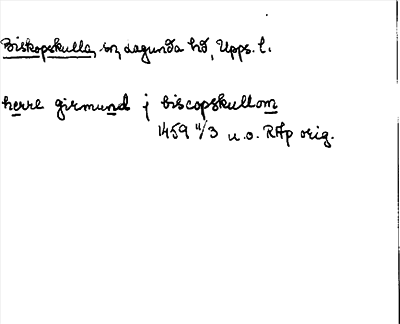 Biskopskulla, sn, Lagunda hd, Upps. l.
herre girmund j biscopskullom
1459 4/3 u.o. RAp orig.